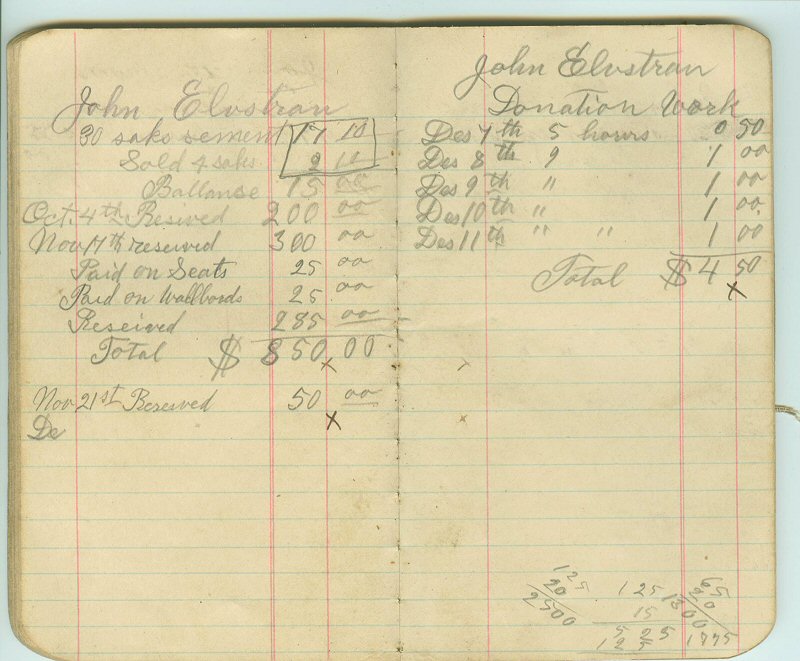 John Elvstran
30 saks sement 17 10
Sold 4 saks 2 10
Ballanse 15 00
Oct. 4th Resived 200 00
Nov 17th reseived 300 00
Paid on Seats 25 00
Paid on Wallbords 25 00
Reseived 285 00
Total $ 850.00
Nov 21st Reseived 50 00
x
De
John Elvstran
Donation Work
Des 7th 5 hours 0 50
Des 8th 9 1 00
Des 9th " 1 00
Des 10th " 1 00
Des 11th " " 1 00
Total $ 4 50
x
125
20
2500
125
15
5 25
125
65
20
1300
1775